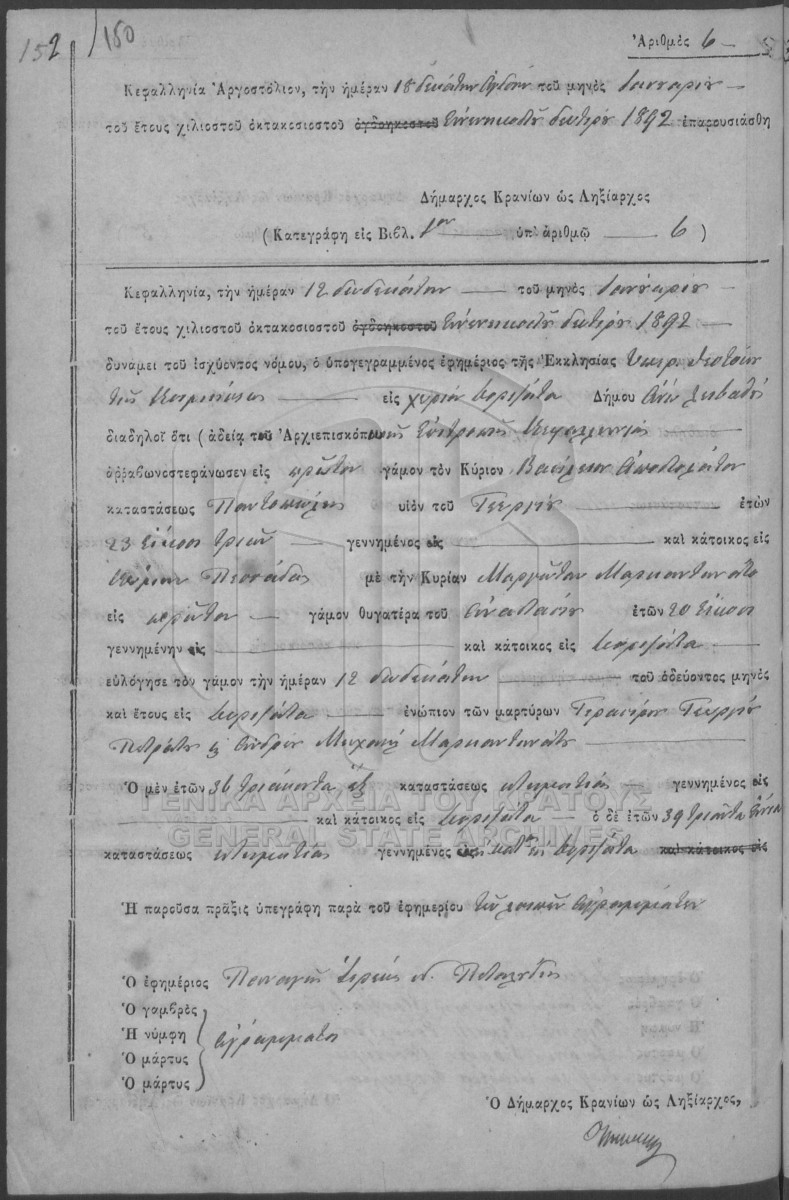 152 150
Ἀριθμὸς 6
Κεφαλληνία Ἀργοστόλιον, τὴν ἡμέραν 18 δεκάτην ὀγδόην τοῦ μηνὸς Ἰανουαρίου
τοῦ ἔτους χιλιοστοῦ ὀκτακοσιοστοῦ ὀγδοηκοστοῦ ἐνενηκοστοῦ δευτέρου 1892 ἐπαρουσιάσθη
Δήμαρχος Κρανίων ὡς Ληξίαρχος
(Κατεγράφη εἰς Βιβλ. 1ον ὑπ' ἀριθμῷ 6)
Κεφαλληνία, τὴν ἡμέραν 12 δωδεκάτην τοῦ μηνὸς Ἰανουαρίου
τοῦ ἔτους χιλιοστοῦ ὀκτακοσιοστοῦ ὀγδοηκοστοῦ ἐνενηκοστοῦ δευτέρου 1892
δυνάμει τοῦ ἰσχύοντος νόμου, ὁ ὑπογεγραμμένος ἐφημέριος τῆς Ἐκκλησίας Ὑπερ. Θεοτόκου
τῆς Κοιμήσεως εἰς χωρίον Κορισάτα Δήμου Ἄνω
διαδηλοῖ ὅτι (ἀδείᾳ τοῦ Ἀρχιεπισκόπου τῆς Ἐπιτροπῆς Κεφαλληνίας
ἀρραβωνοστεφάνωσεν εἰς πρῶτον γάμον τὸν Κύριον Βασίλειον Ἀποστολάτον
καταστάσεως Παντοπώλης υἱὸν τοῦ Γεωργίου ἐτῶν
23 εἴκοσι τριῶν γεννημένος εἰς καὶ κάτοικος εἰς
Κώμην Πεσσάδας μὲ τὴν Κυρίαν Μαργῶταν Μαρκαντωνάτο
εἰς πρῶτον γάμον θυγατέρα τοῦ Ἀναστασίου ἐτῶν 20 εἴκοσι
γεννημένην εἰς καὶ κάτοικος εἰς Κορισάτα
εὐλόγησε τὸν γάμον τὴν ἡμέραν 12 δωδεκάτην τοῦ ὁδεύοντος μηνὸς
καὶ ἔτους εἰς Κορισάτα ἐνώπιον τῶν μαρτύρων Γερασίμου Γεωργίου
Μαρκαντωνάτου
Ὁ μὲν ἐτῶν 36 τριάκοντα ἕξ καταστάσεως κτηματίας γεννημένος εἰς
καὶ κάτοικος εἰς Κορισάτα ὁ δὲ ἐτῶν 39 τριάντα ἐννέα
καταστάσεως κτηματίας γεννημένος εἰς Κορισάτα καὶ κάτοικος εἰς
ΓΕΝΙΚΑ ΑΡΧΕΙΑ ΤΟΥ ΚΡΑΤΟΥΣ
GENERAL STATE ARCHIVES
Ἡ παροῦσα πρᾶξις ὑπεγράφη παρὰ τοῦ ἐφημερίου τῶν λοιπῶν ἀγραμμάτων
Ὁ ἐφημέριος Παναγῆς Ἱερεὺς
Ὁ γαμβρὸς
Ἡ νύμφη ἀγράμματοι
Ὁ μάρτυς
Ὁ μάρτυς
Ὁ Δήμαρχος Κρανίων ὡς Ληξίαρχος,